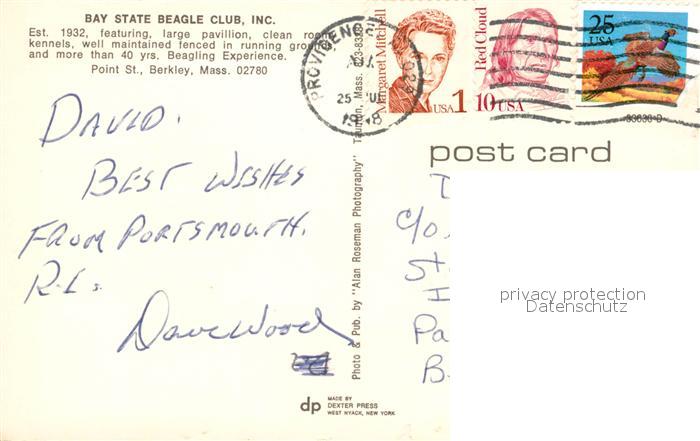 BAY STATE BEAGLE CLUB, INC.
Est. 1932, featuring, large pavillion, clean room
kennels, well maintained fenced in running grounds
and more than 40 yrs. Beagling Experience.
Point St., Berkley, Mass. 02780
PROVIDENCE
25
Margaret Mitchell
USA 1
Red Cloud
10 USA
25
USA
post card
DAVID.
BEST WISHES
FROM PORTSMOUTH.
R.I.
Dave Wood
Photo & Pub. by "Alan Roseman Photography" Taunton, Mass.
c/o
St
I
Pa
B
privacy protection
Datenschutz
dp
MADE BY
DEXTER PRESS
WEST NYACK, NEW YORK